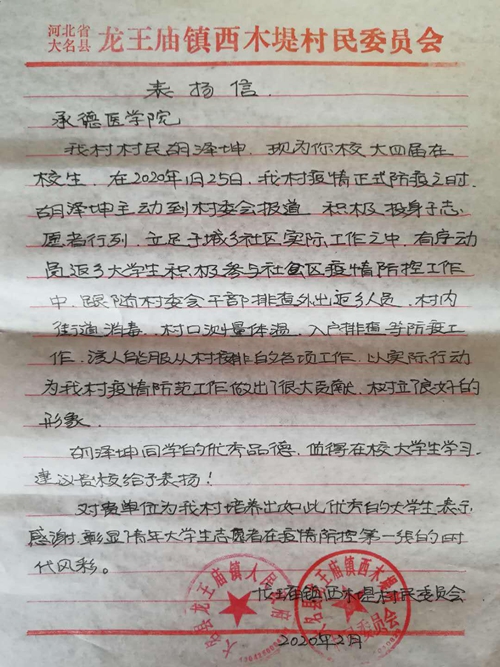 河北省
大名县 龙王庙镇西木堤村民委员会
表扬信.
承德医学院
我村村民胡泽坤，现为你校大四届在
校生，在2020年1月25日，我村疫情正式防疫之时，
胡泽坤主动到村委会报道，积极投身于志
愿者行列，立足于城乡社区实际工作之中，有序动
员返乡大学生积极参与社会区疫情防控工作
中，跟随村委会干部排查外出返乡人员，村内
街道消毒，村口测量体温，入户排查等防疫工
作，该人能服从村安排的各项工作，以实际行动
为我村疫情防范工作做出了很大贡献，树立了良好的
形象。
胡泽坤同学的优秀品德，值得在校大学生学习，
建议贵校给予表扬！
对贵单位为我村培养出如此优秀的大学生表示
感谢，彰显了青年大学生志愿者在疫情防控第一线的时
代风彩。
龙王庙镇西木堤村民委员会
2020年2月
大名县龙王庙镇人民
大名县龙王庙镇西木堤村民委员会